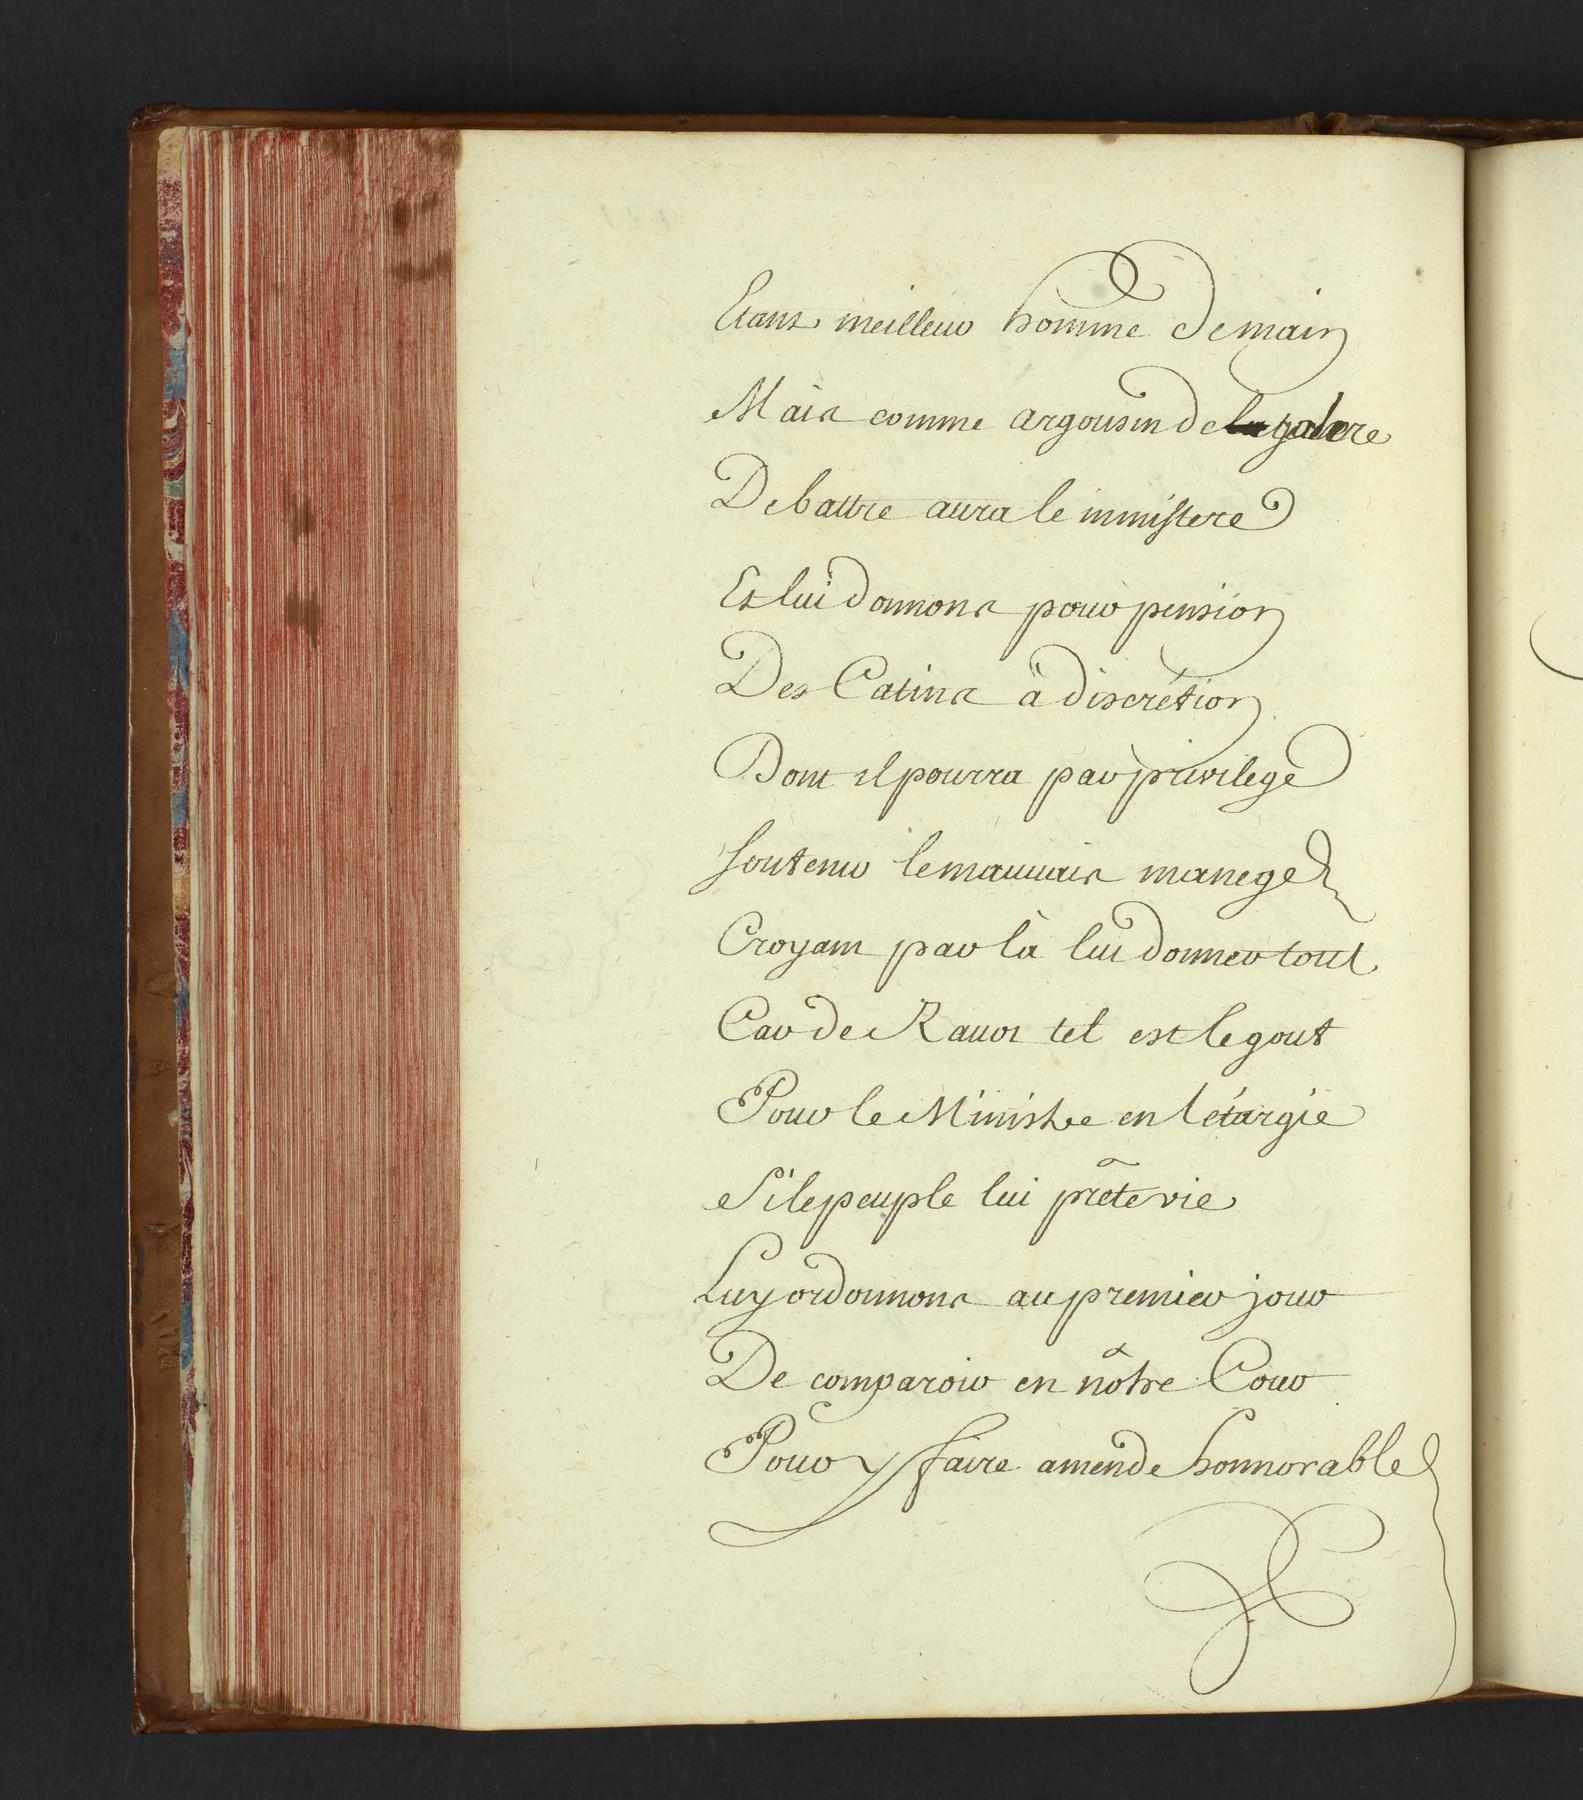 Etant meilleur homme de main
Mais comme argousin de galere
De battre aura le ministere
Et lui donnons pour pension
Des Catins à discrétion
Dont il pourra par privilege
Soutenir le mauuais manege
Croyant par là lui donner tout
Car de Rauot tel est le gout
Pour le Ministre en létargie
Si le peuple lui prête vie
Luy ordonnons au premier jour
De comparoir en nôtre Cour
Pour y faire amende honnorable